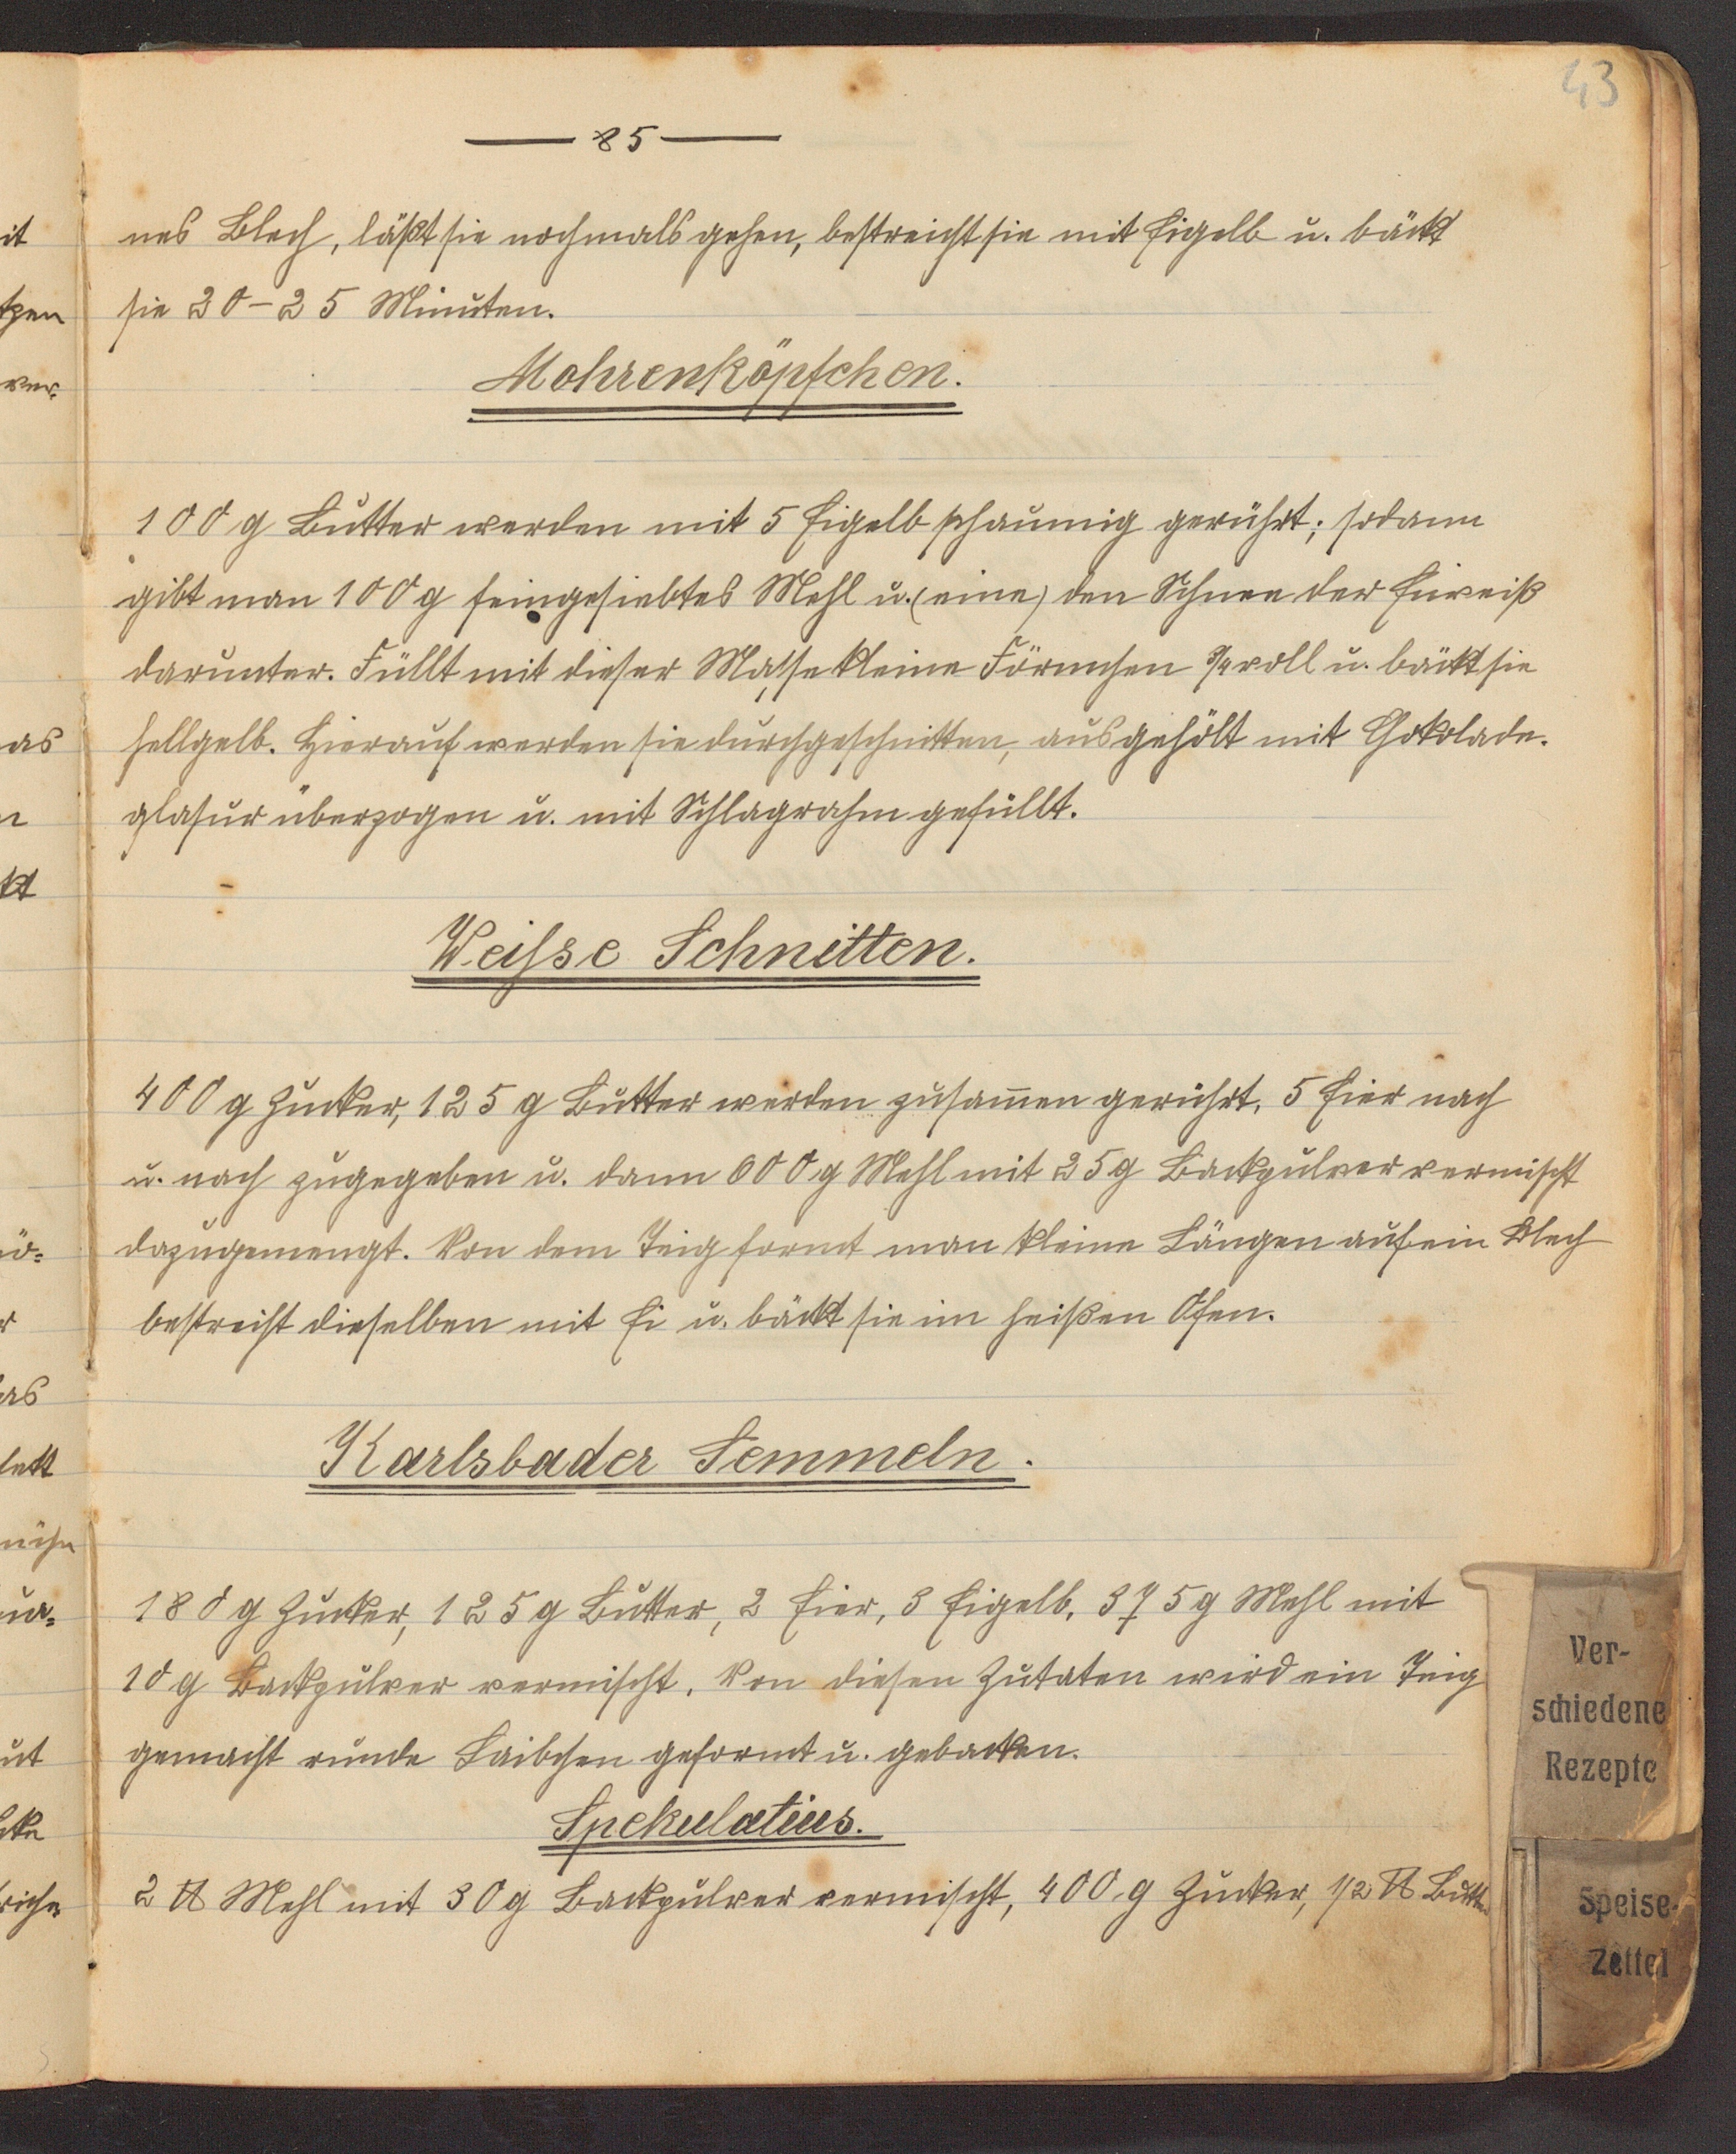 43
— 85 —
nes Blech, läßt sie nochmals gehen, bestreicht sie mit Eigelb u. bäckt
sie 20-25 Minuten.
Mohrenköpfchen.
100 g Butter werden mit 5 Eigelb schaumig gerührt; sodann
gibt man 100 g feingesiebtes Mehl u. (eine) den Schnee der Eiweiß
darunter. Füllt mit dieser Masse kleine Förmchen 3/4 voll u. bäckt sie
hellgelb. Hierauf werden sie durchgeschnitten, ausgehölt mit Chokolade-
glasur überzogen u. mit Schlagrahm gefüllt.
Weisse Schnitten.
400 g Zucker, 125 g Butter werden zusam̅en gerührt, 5 Eier nach
u. nach zugegeben u. dann 600 g Mehl mit 25 g Backpulver vermischt
dazugemengt. Von dem Teig formt man kleine Längen auf ein Blech
bestreicht dieselben mit Ei u. bäckt sie im heißen Ofen.
Karlsbader Semmeln.
180 g Zucker, 125 g Butter, 2 Eier, 3 Eigelb, 375 g Mehl mit
10 g Backpulver vermischt. Von diesen Zutaten wird ein Teig
gemacht runde Laibchen geformt u. gebacken.
Spekulatius.
2 ℔ Mehl mit 30 g Backpulver vermischt, 400 g Zucker, 1/2 ℔ Butter
Ver-
schiedene
Rezepte
Speise-
Zettel